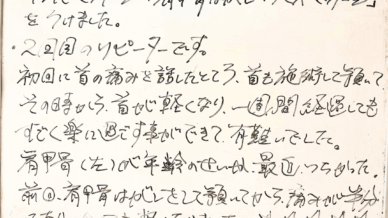 をうけました。
・2回目のリピーターです。
初回に首の痛みを話したところ、首も施術して頂いて
その時から、首が軽くなり、一週間経過しても
すごく楽に過ごす事ができて、有難いでした。
肩甲骨(左)が年齢のせいか、最近、つらかった。
前回、肩甲骨はがしをして頂いてから、痛みが半分